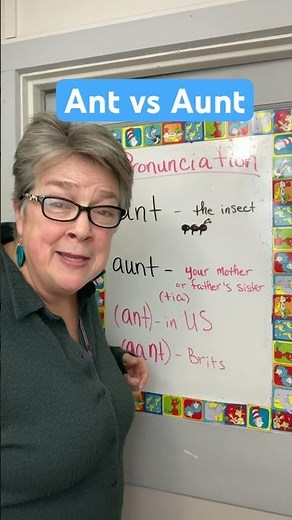 Ant vs Aunt
Pronunciation
ant - the insect
aunt - your mother
or father's sister
(tia)
(ant) - in US
(aant) - Brits